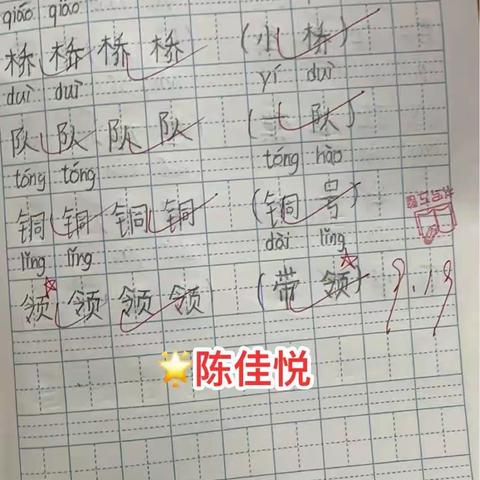 qiáo qiáo
桥 桥 桥 桥 (小 桥)
duì duì yí duì
队 队 队 队 (一 队)
tóng tóng tóng hào
铜 铜 铜 铜 (铜 号)
lǐng lǐng dài lǐng
领 领 领 领 (带 领)
9.19
🌟陈佳悦